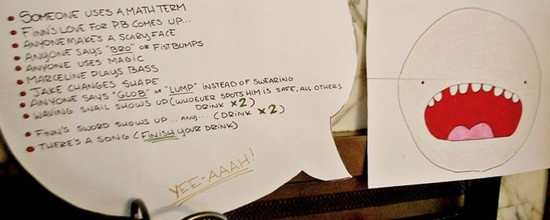 SOMEONE USES A MATH TERM
FINN'S LOVE FOR P.B COMES UP...
ANYONE MAKES A SCARY FACE
ANYONE SAYS "BRO" OR FISTBUMPS
ANYONE USES MAGIC
MARCELINE PLAYS BASS
JAKE CHANGES SHAPE
ANYONE SAYS "GLOB" OR "LUMP" INSTEAD OF SWEARING
WAVING SNAIL SHOWS UP (WHOEVER SPOTS HIM IS SAFE, ALL OTHERS
DRINK x2)
FINN'S SWORD SHOWS UP... ANY... (DRINK x2)
THERE'S A SONG (FINISH YOUR DRINK)
YEE-AAAH!